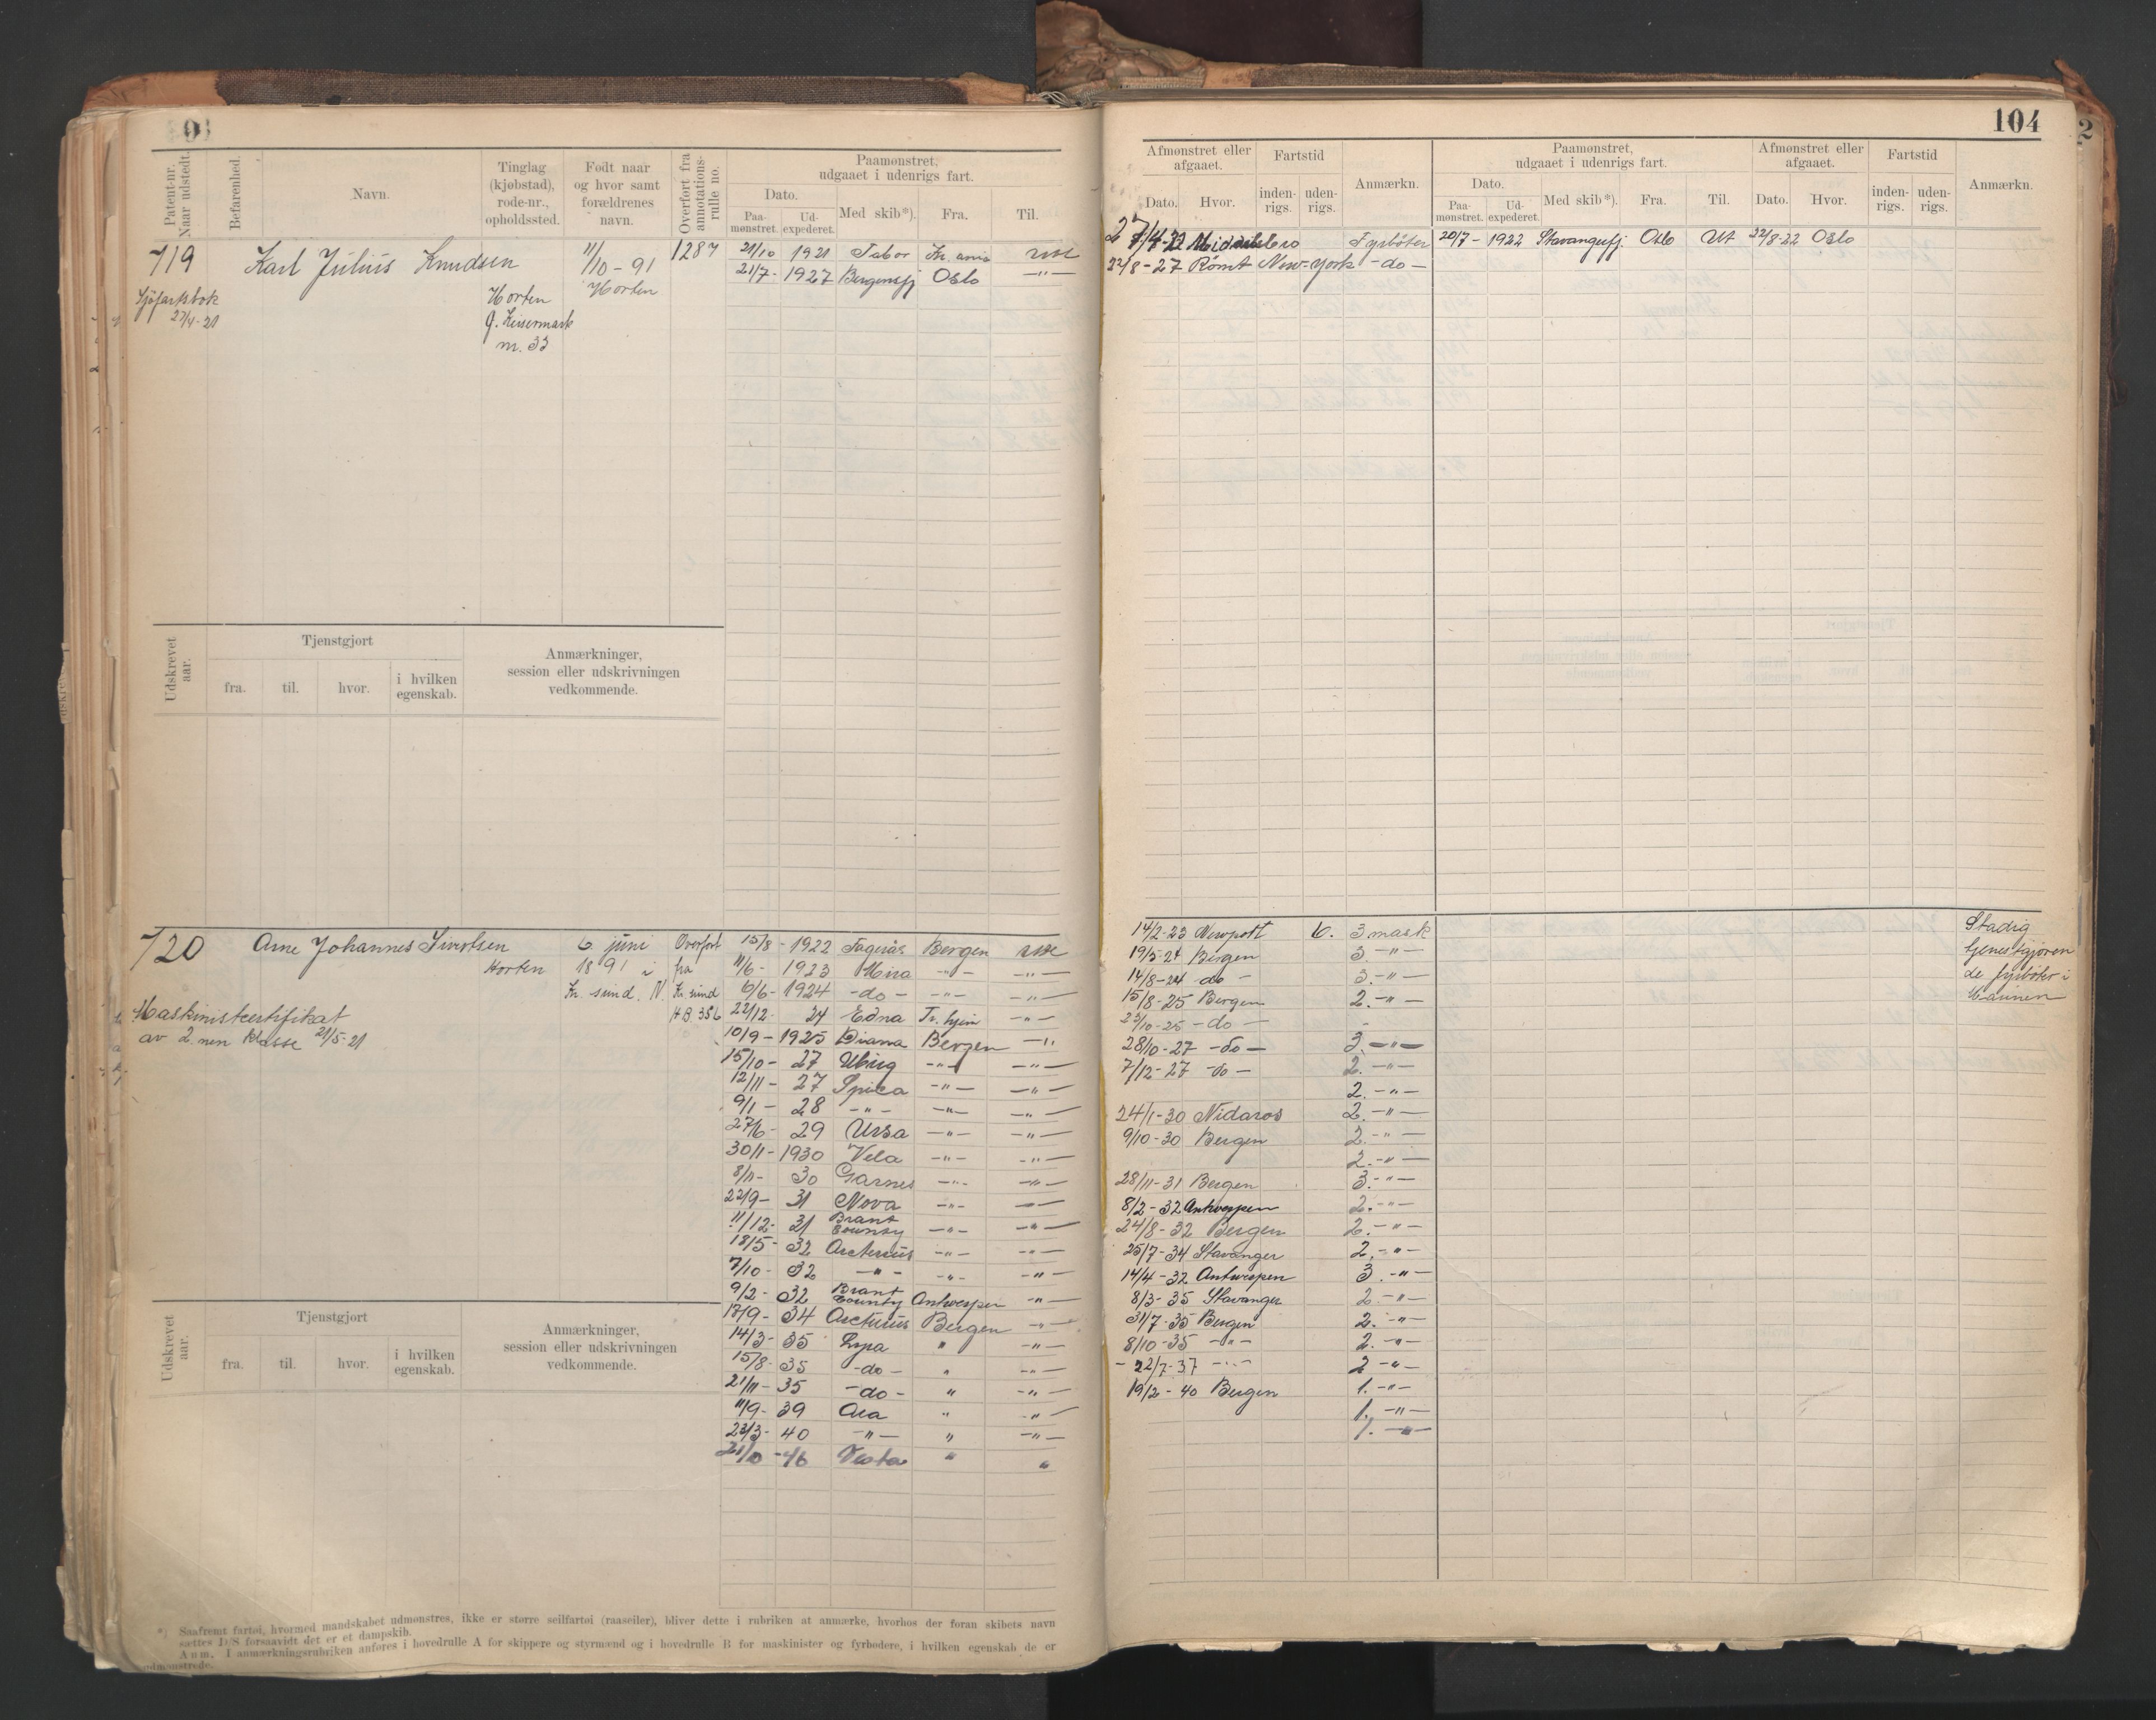 104
Patent-nr. Naar udstedt.
Befarenhed.
Navn.
Tinglag (kjøbstad), rode-nr., opholdssted.
Født naar og hvor samt forældrenes navn.
Overført fra annotations-rulle no.
Paamønstret, udgaaet i udenrigs fart.
Dato.
Paa-mønstret. Ud-expederet.
Med skib*).
Fra.
Til.
Afmønstret eller afgaaet.
Dato. Hvor.
Fartstid
inden-rigs. uden-rigs.
Anmærkn.
Paamønstret, udgaaet i udenrigs fart.
Dato.
Paa-mønstret. Ud-expederet.
Med skib*).
Fra.
Til.
Afmønstret eller afgaaet.
Dato. Hvor.
Fartstid
inden-rigs. uden-rigs.
Anmærkn.
719 Karl Julius Knudsen 11/10-91 1287 21/10 1921 Tabor Kr.ania
Sjöfartsbok 27/4-21
Horten
Horten
nr. 33
21/7- 1927 Bergensfj Oslo -"-
27/4-22 Fyrbøter 20/7- 1922 Stavangerfj Oslo Ut 22/8-22 Oslo
22/8-27 Rømt New-york -do-
Udskrevet aar.
Tjenstgjort
fra. til. hvor. i hvilken egenskab.
Anmærkninger, session eller udskrivningen vedkommende.
720 Arne Johannes Sivertsen
Horten
6 juni 1891 i Kr. sund. N.
Overført fra Kr. sund H.B. 356
Maskinistcertifikat
av 2.nen klasse 21/5-21
15/8- 1922 Fagerås Bergen
11/6- 1923 Mira -"- -"-
6/6- 1924 -do- -"- -"-
22/12- 24 Edna Tr.hjem -"-
10/9- 1925 Diana Bergen -"-
15/10- 27 -"- -"-
12/11- 27 Spica -"- -"-
9/1- 28 -"- -"- -"-
27/6- 29 Ursa -"- -"-
30/1- 1930 Vela -"- -"-
8/11- 30 Garnes -"- -"-
22/9- 31 Nova -"- -"-
11/12- 31 Brant County -"- -"-
18/5- 32 Arcturus -"- -"-
7/10- 32 -"- -"- -"-
9/2- 32 Brant County Antwerpen -"-
17/9- 34 Arcturus Bergen -"-
14/3- 35 Lyra " -"-
15/8- 35 -do- " -"-
21/11- 35 -do- " -"-
11/9- 39 Ara " -"-
23/3- 40 -"- " -"-
21/10-46 Vesta " "
14/2-23 Newport 6. 3 mask
19/5-24 Bergen 3. -"-
14/8-24 do - 3. -"-
15/8-25 Bergen 2. -"-
23/10-25 -do- -
28/10-27 -do- 3. -"-
7/12-27 -do- 2. -"-
2. -"-
24/1-30 Nidaros 2. -"-
9/10-30 Bergen 2. -"-
2. -"-
28/11-31 Bergen 3. -"-
8/2-32 Antwerpen 2. -"-
24/8-32 Bergen 2. -"-
25/7-34 Stavanger 2. -"-
14/4-32 Antwerpen 3. -"-
8/3-35 Stavanger 2. -"-
31/7-35 Bergen 2. -"-
8/10-35 -"- 2. -"-
- 22/7-37 -"- 2 -"-
19/2-40 Bergen 1. -"-
1. -"-
1. -"-
Stadig
tjenestgjøren
de fyrbøter i
Marinen
Udskrevet aar.
Tjenstgjort
fra. til. hvor. i hvilken egenskab.
Anmærkninger, session eller udskrivningen vedkommende.
*) Saafremt fartøi, hvormed mandskabet udmønstres, ikke er større seilfartøi (raaseiler), bliver dette i rubriken at anmærke, hvorhos der foran skibets navn
sættes D/S forsaavidt det er et dampskib.
Anm. I anmærkningsrubriken anføres i hovedrulle A for skippere og styrmænd og i hovedrulle B for maskinister og fyrbødere, i hvilken egenskab de er
udmønstrede.